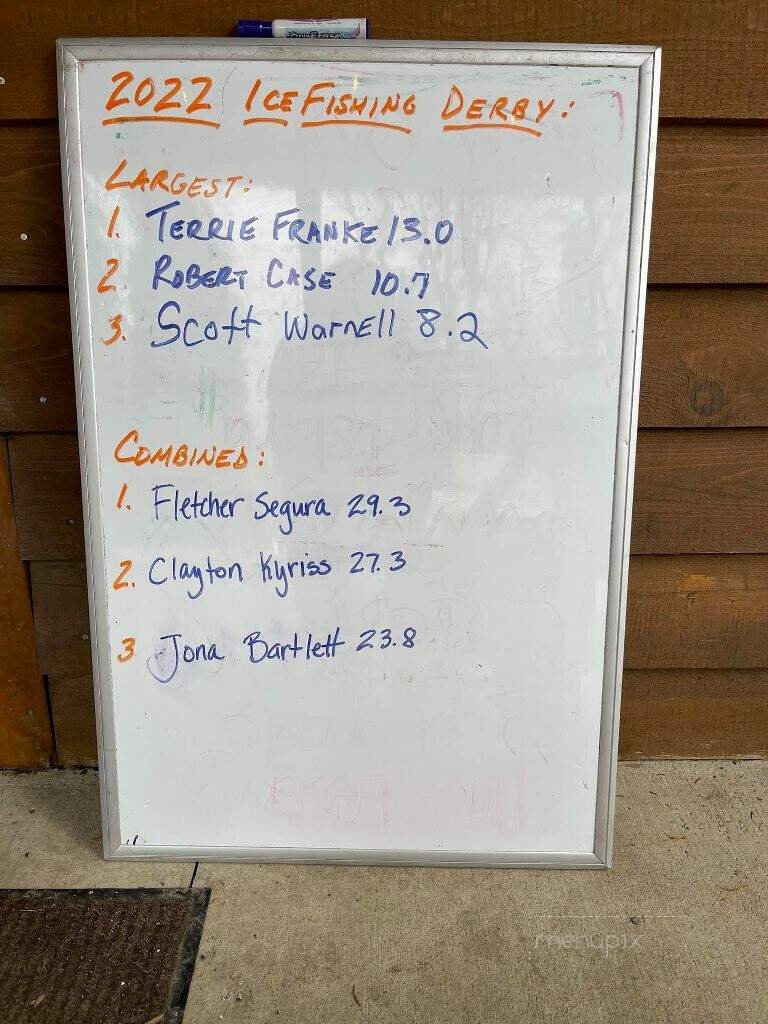 2022 ICE FISHING DERBY:
LARGEST:
1. TERRIE FRANKE 13.0
2. ROBERT CASE 10.7
3. Scott Warnell 8.2
COMBINED:
1. Fletcher Segura 29.3
2. Clayton Kyriss 27.3
3 Jona Bartlett 23.8
menupix